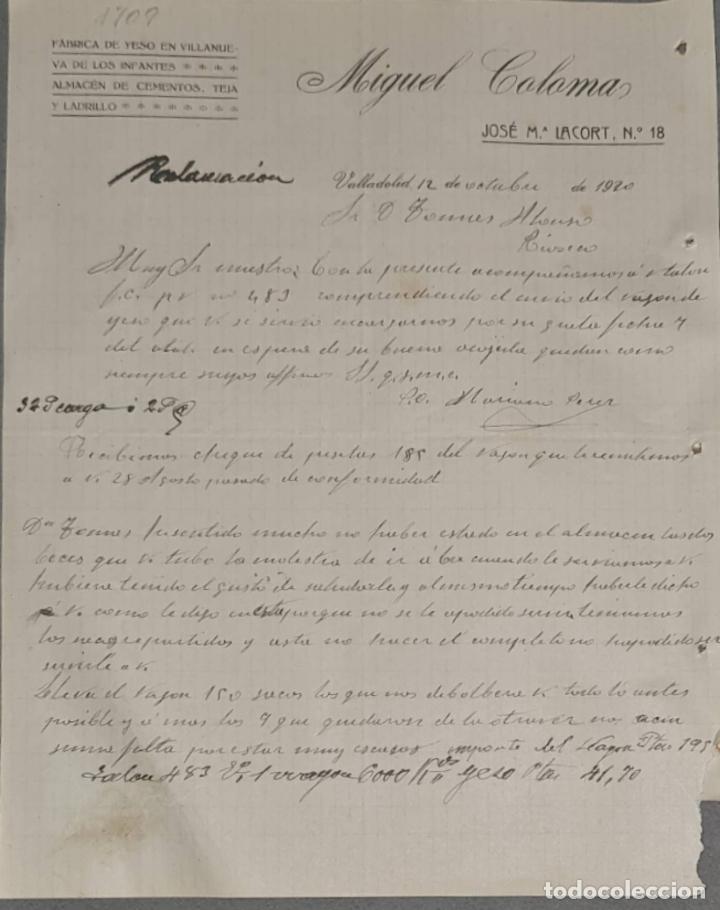 1702
FÁBRICA DE YESO EN VILLANUE-
VA DE LOS INFANTES
ALMACÉN DE CEMENTOS, TEJA
Y LADRILLO
Miguel Coloma
JOSÉ M.ª LACORT, N.º 18
Reclamación
Valladolid 12 de octubre de 1920
Sr D
Rioseco
Muy Sr nuestro: Con la presente acompañamos á V talon
f.c. p v nº 483 comprendiendo el envio del vagon de
yeso que V. se sirvio encargarnos por su grata fecha 7
del actual en espera de su buena acojida quedan como
siempre suyos affmos q.s.m.e.
P.O. Mariano Perez
Recibimos cheque de pesetas 185 del vagon que le remitimos
a V. 28 Agosto pasado de conformidad
Dn he sentido mucho no haber estado en el almacen las dos
beces que V. tubo la molestia de ir á ber cuando le serviamos a V.
hubiera tenido el gusto de saludarle y al mismo tiempo haberle dicho
á V. como le digo en esta porque no se le a podido servir teniamos
los repartidos y esta no hacer el completo no
servirle a V.
Lleva el vagon 150 sacos los que nos debolbera V. todo lo antes
posible y á mas los 7 que quedaron de la otra vez nos acen
suma falta por estar muy escasos importe del vagon Ptas 195
Talon 483 1 vagon 6000 Kos yeso Ptas 41,70
todocoleccion